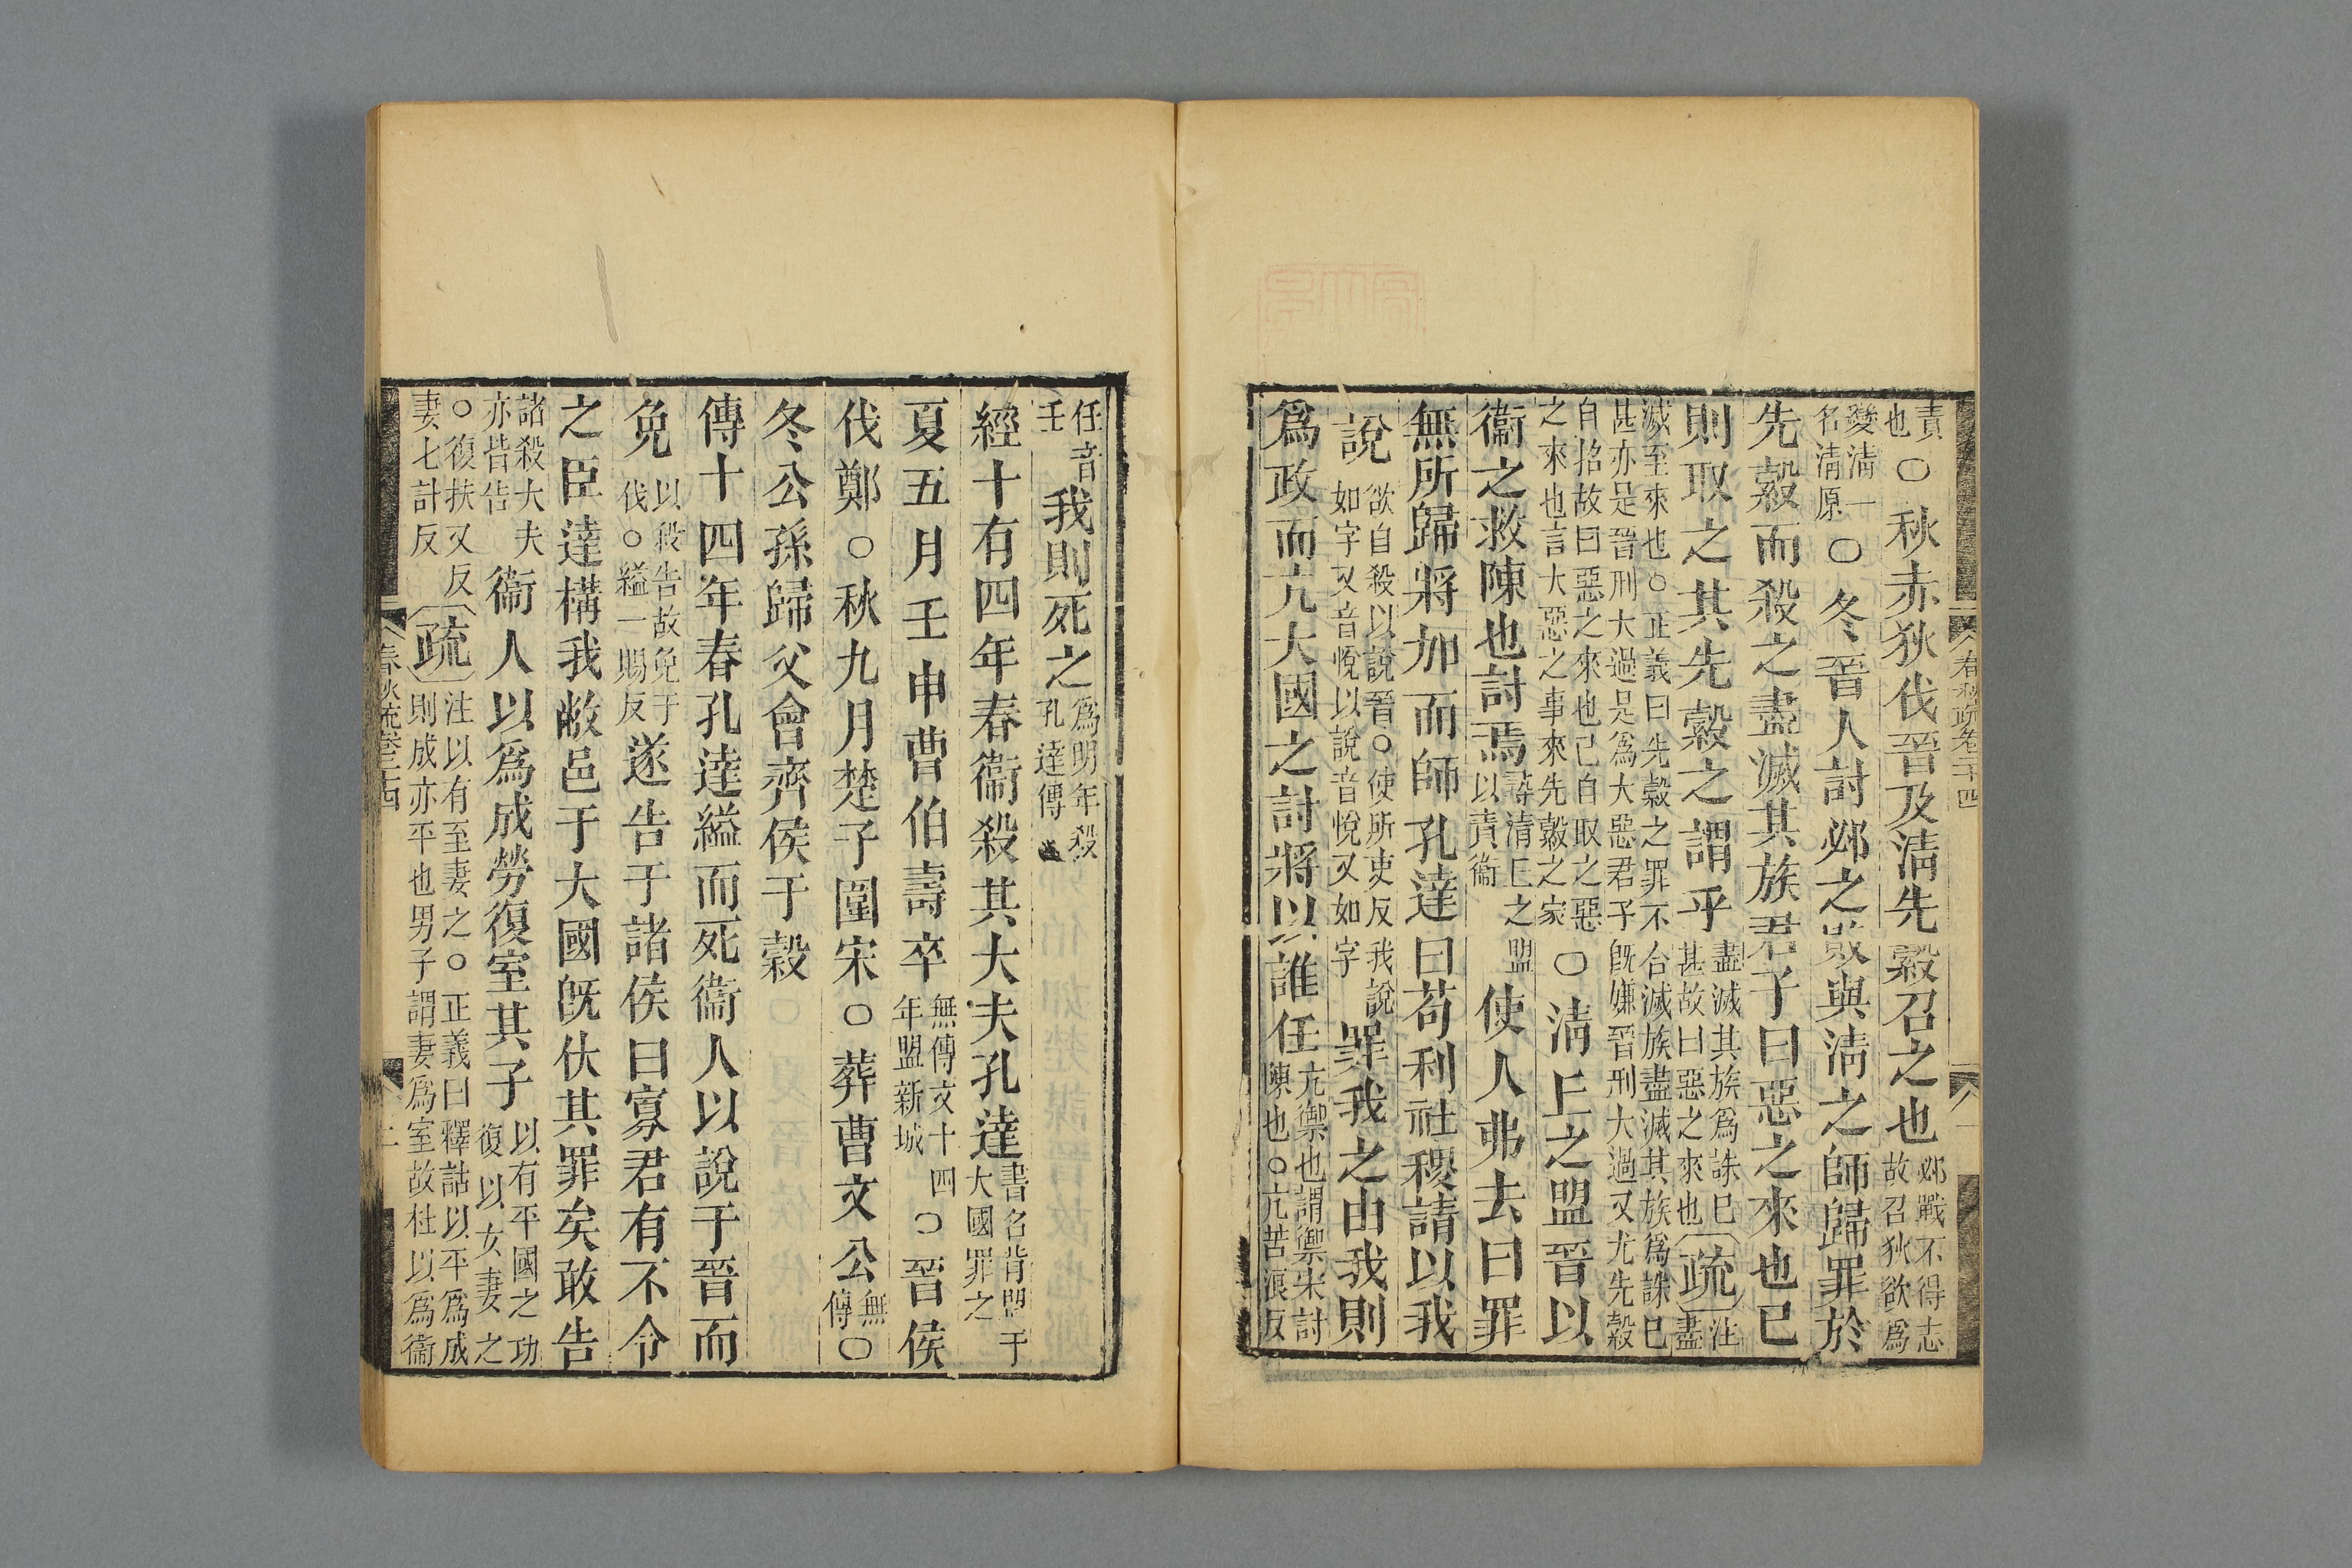 責也○秋赤狄伐晉及淸先縠召之也邲戰不得志故召狄欲爲
變淸一名淸原○冬晉人討邲之敗與淸之師歸罪於
先縠而殺之盡滅其族君子曰惡之來也已
則取之其先縠之謂乎盡滅其族爲誅已甚故曰惡之來也疏注盡
滅至來也○正義曰先縠之罪不合滅族盡滅其族爲誅已甚亦是晉刑大過是爲大惡君子旣嫌晉刑大過又尤先縠
自招故曰惡之來也已自取之惡之來也言大惡之事來先縠之家○淸丘之盟晉以
衞之救陳也討焉尋淸丘之盟以責衞使人弗去曰罪
無所歸將加而師孔達曰苟利社稷請以我
說欲自殺以說晉○使所吏反如字又音悅以說音悅又如字我說罪我之由我則
爲政而亢大國之討將以誰任亢禦也謂禦宋討陳也○亢苦浪反
春秋疏卷二十四
任音壬我則死之爲明年殺孔達傳
經十有四年春衞殺其大夫孔達書名背盟于大國罪之
夏五月壬申曹伯壽卒無傳文十四年盟新城○晉侯
伐鄭○秋九月楚子圍宋○葬曹文公無傳○
冬公孫歸父會齊侯于穀
傳十四年春孔達縊而死衞人以說于晉而
免以殺告故免于伐○縊一賜反遂告于諸侯曰寡君有不令
之臣達構我敝邑于大國旣伏其罪矣敢告
諸殺大夫亦皆告衞人以爲成勞復室其子以有平國之功復以女妻之
○復扶又反妻七計反疏注以有至妻之○正義曰釋詁以平爲成則成亦平也男子謂妻爲室故杜以爲衞